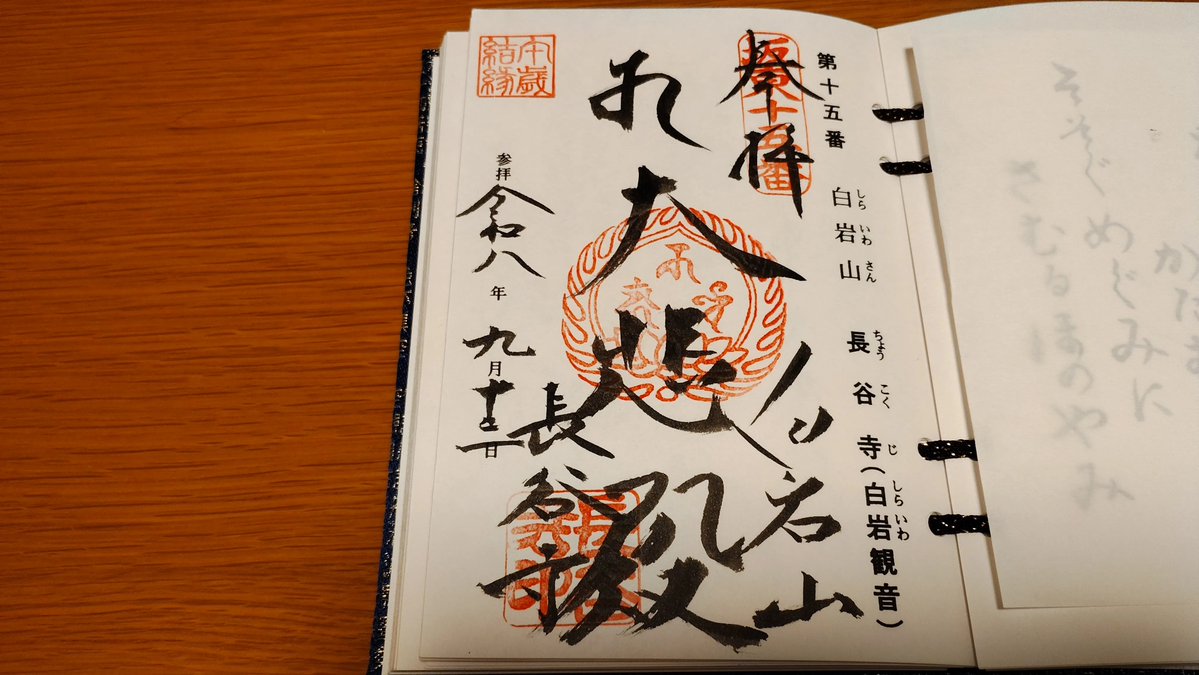 第十五番 白岩山 長谷寺(白岩観音)
しらいわさん ちょうこくじ しらいわ
坂東十五番
奉拝
白岩山
大悲殿
長谷寺
午歳
結縁
参拝 令和八年九月 日
そそぐめぐみに